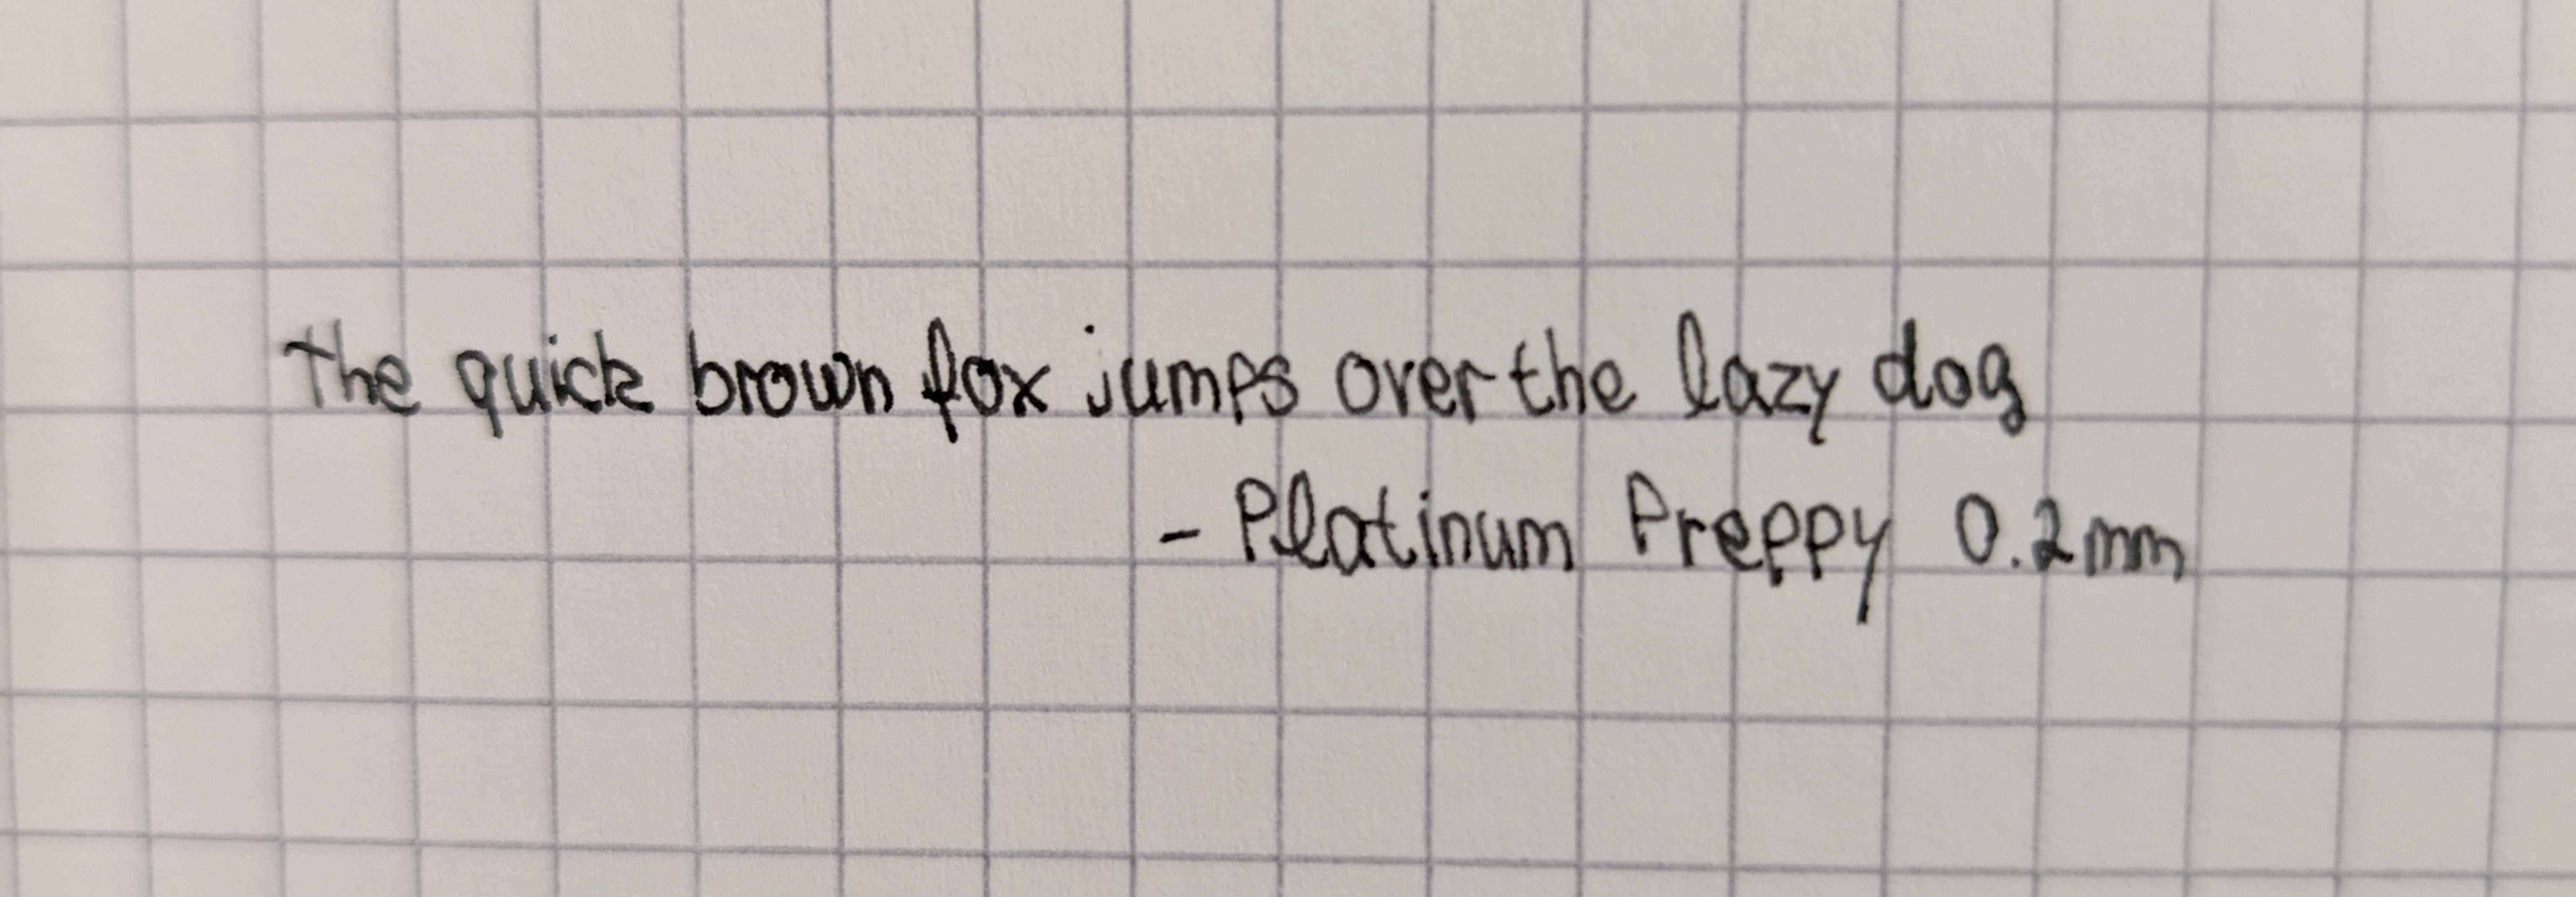 The quick brown fox jumps over the lazy dog
- Platinum Preppy 0.2mm